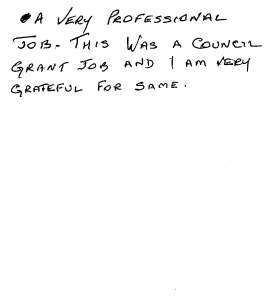 • A VERY PROFESSIONAL
JOB. THIS WAS A COUNCIL
GRANT JOB AND I AM VERY
GRATEFUL FOR SAME.